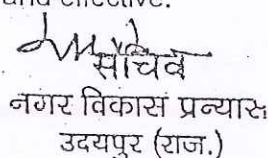 and effective.
सचिव
नगर विकास प्रन्यास
उदयपुर (राज.)